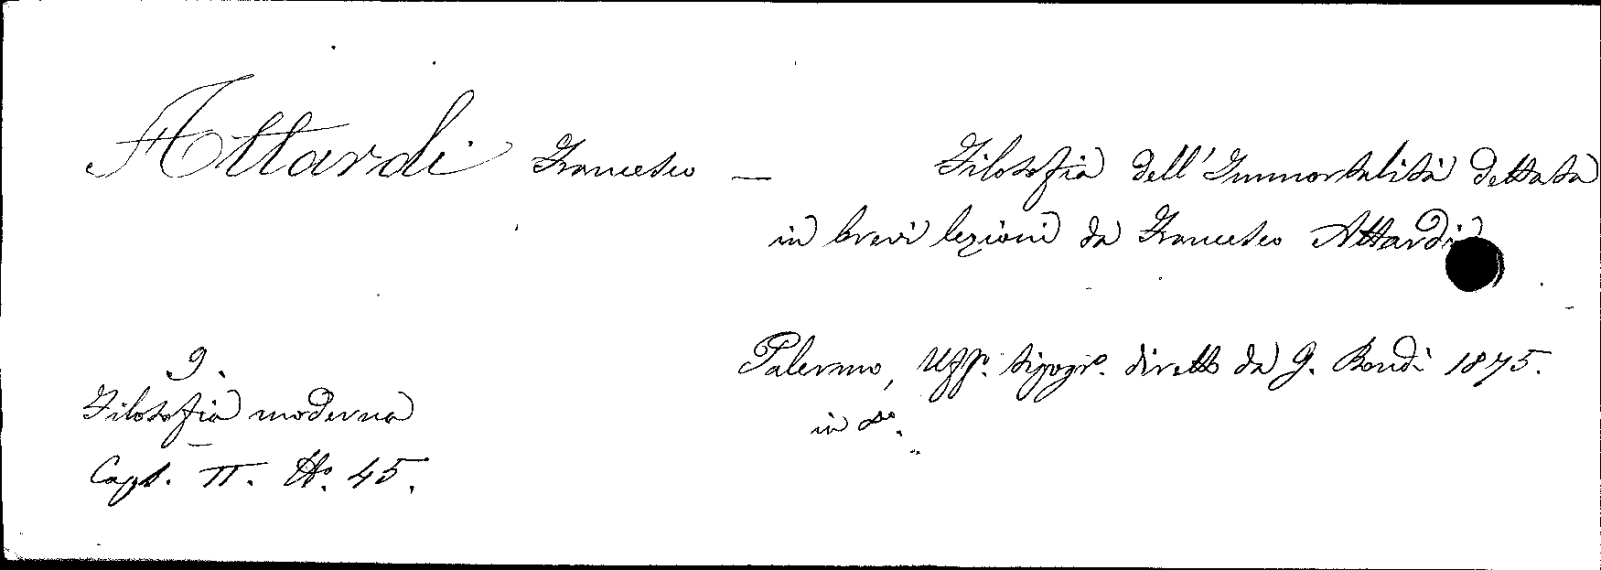 Attardi Francesco — Filosofia dell'Immortalità dettata
in brevi lezioni da Francesco Attardi
Palermo, Uff°. tipogr°. diretto da G. Bondi 1875.
in 8°.
9.
Filosofia moderna
Caps. II. N°. 45.